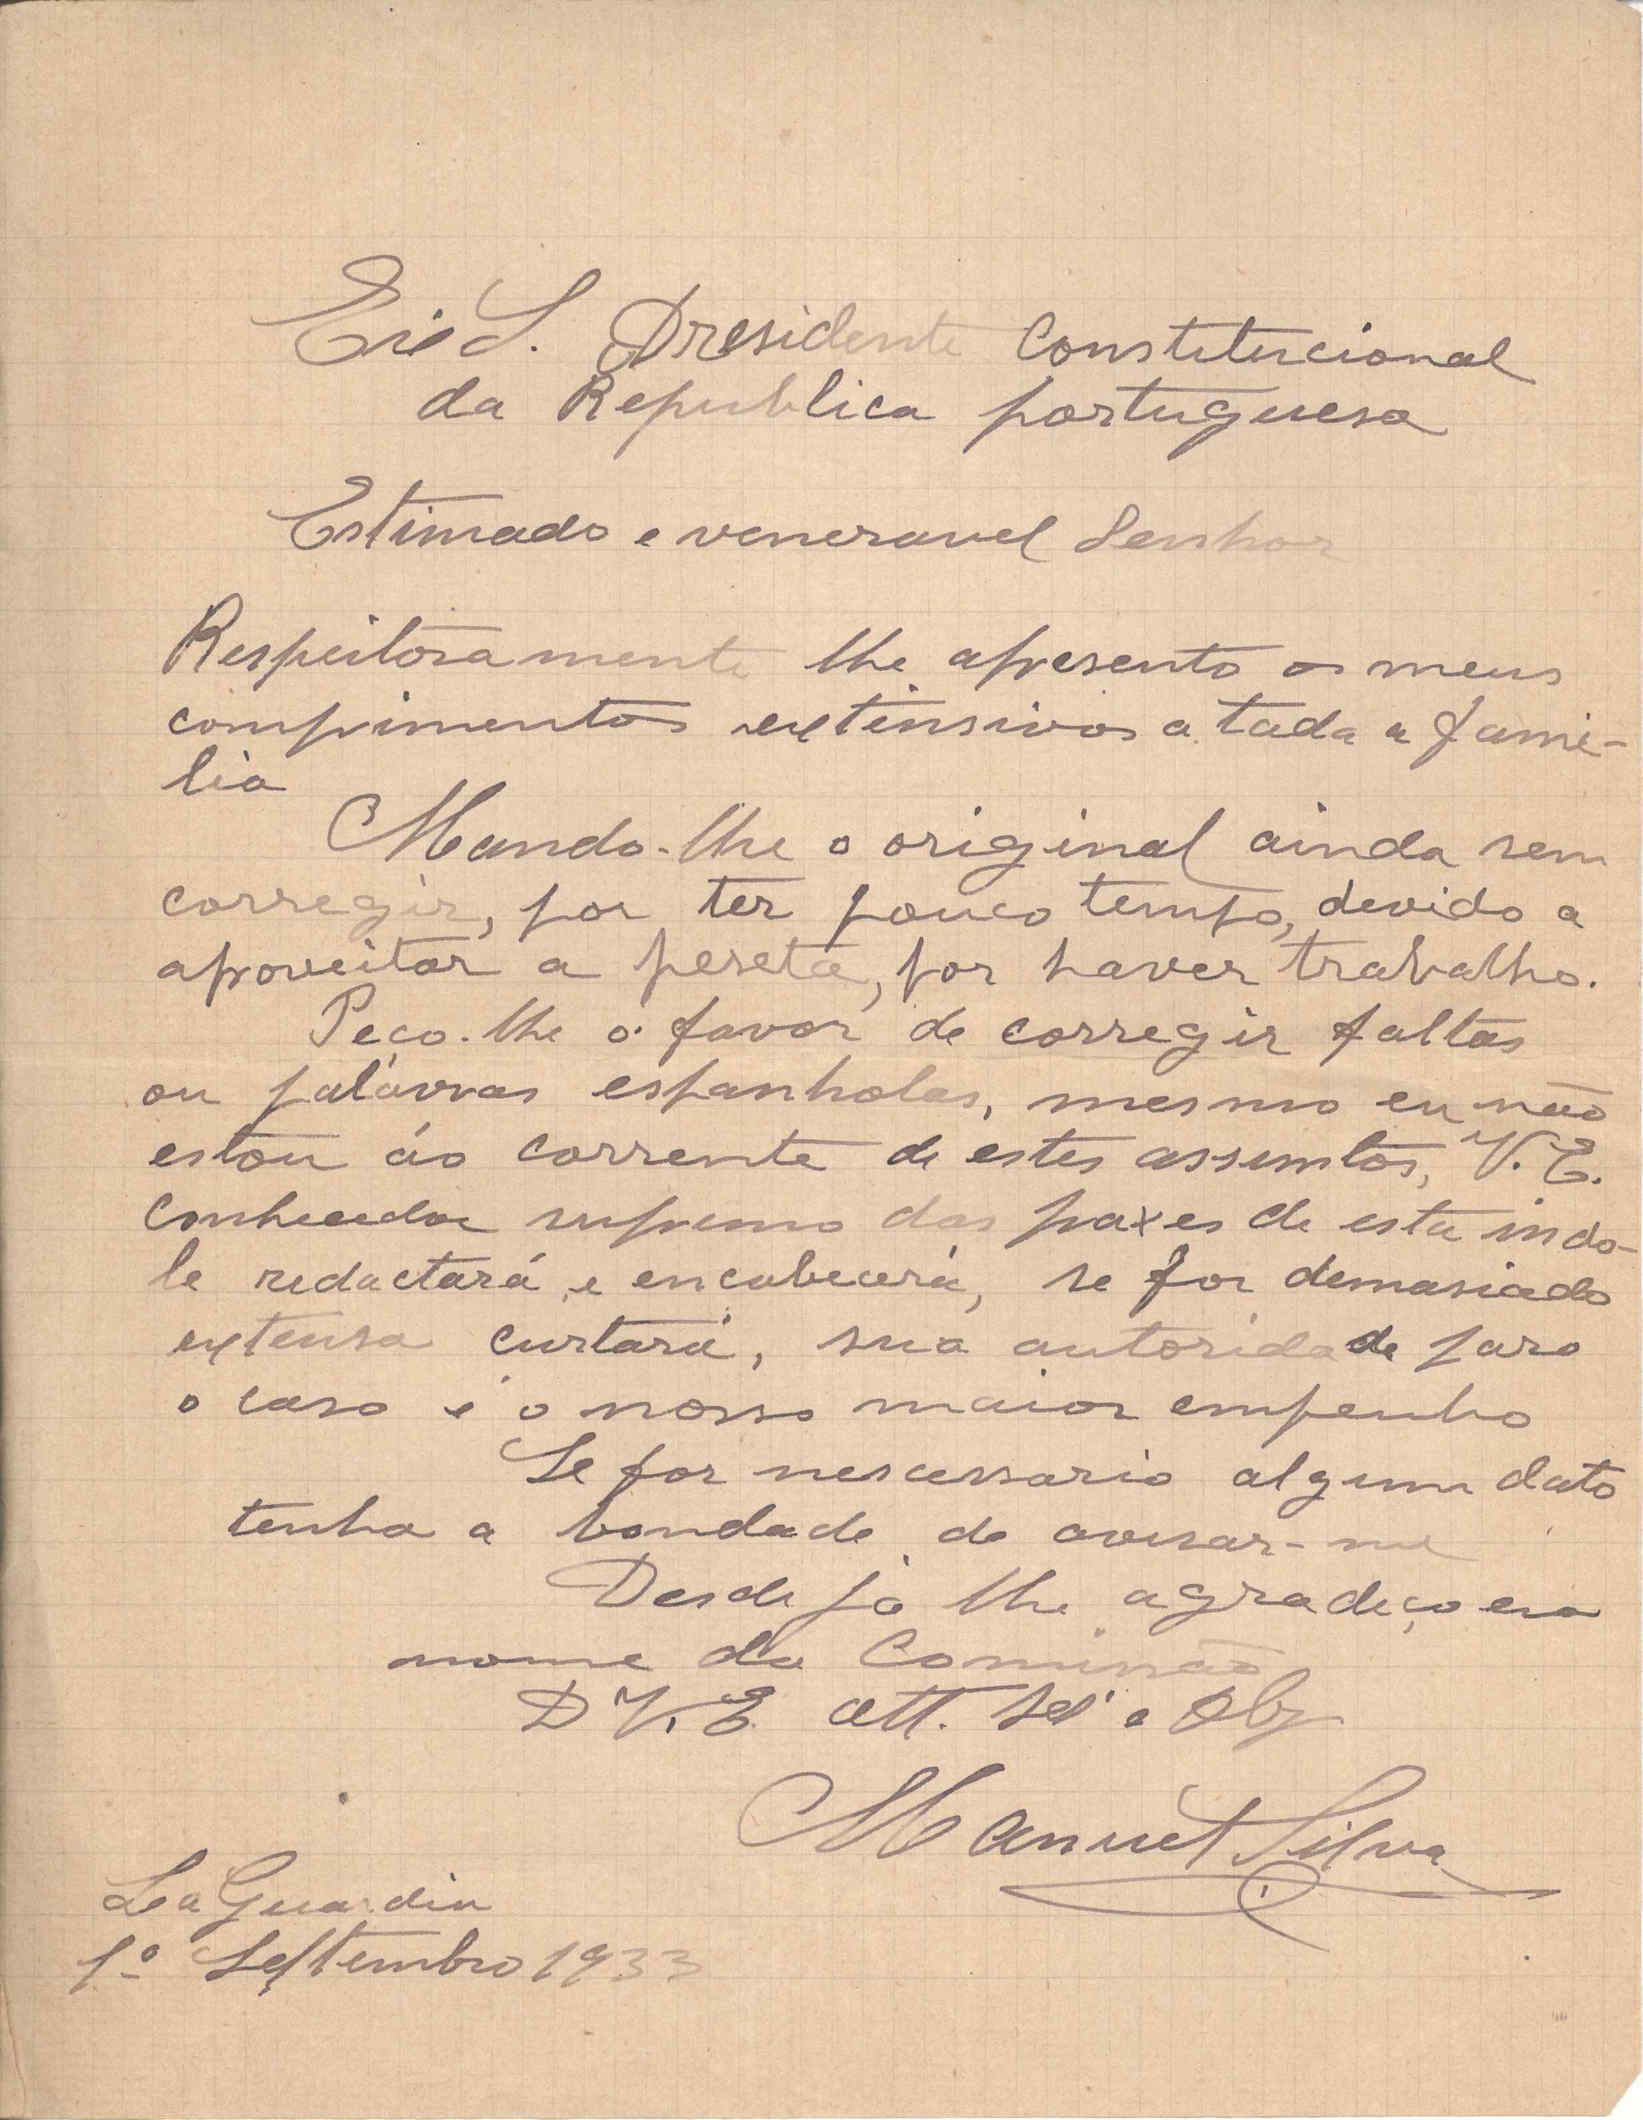 Exº S. Presidente Constitucional
da Republica portuguesa
Estimado e veneravel Senhor
Respeitosamente lhe apresento os meus
comprimentos extensivos a toda a fami-
lia
Mando-lhe o original ainda sem
corregir, por ter pouco tempo, devido a
aproveitar a peseta, por haver trabalho.
Peço-lhe o favor de corregir faltas
ou palávras espanholas, mesmo eu não
estou áo corrente de estes assumtos, V. E.
conhecedor supremo das fraxes de esta indo-
le redactará e encabecerá, se for demasiado
extensa curtará, sua autoridade para
o caso é o nosso maior empenho
Se for nescessario algum dato
tenha a bondade de avisar-me
Desde já lhe agradeço em
nome da Comissão
D V. E. att. e Obg
Manuel Silva
La Guardia
1º Septembro 1933